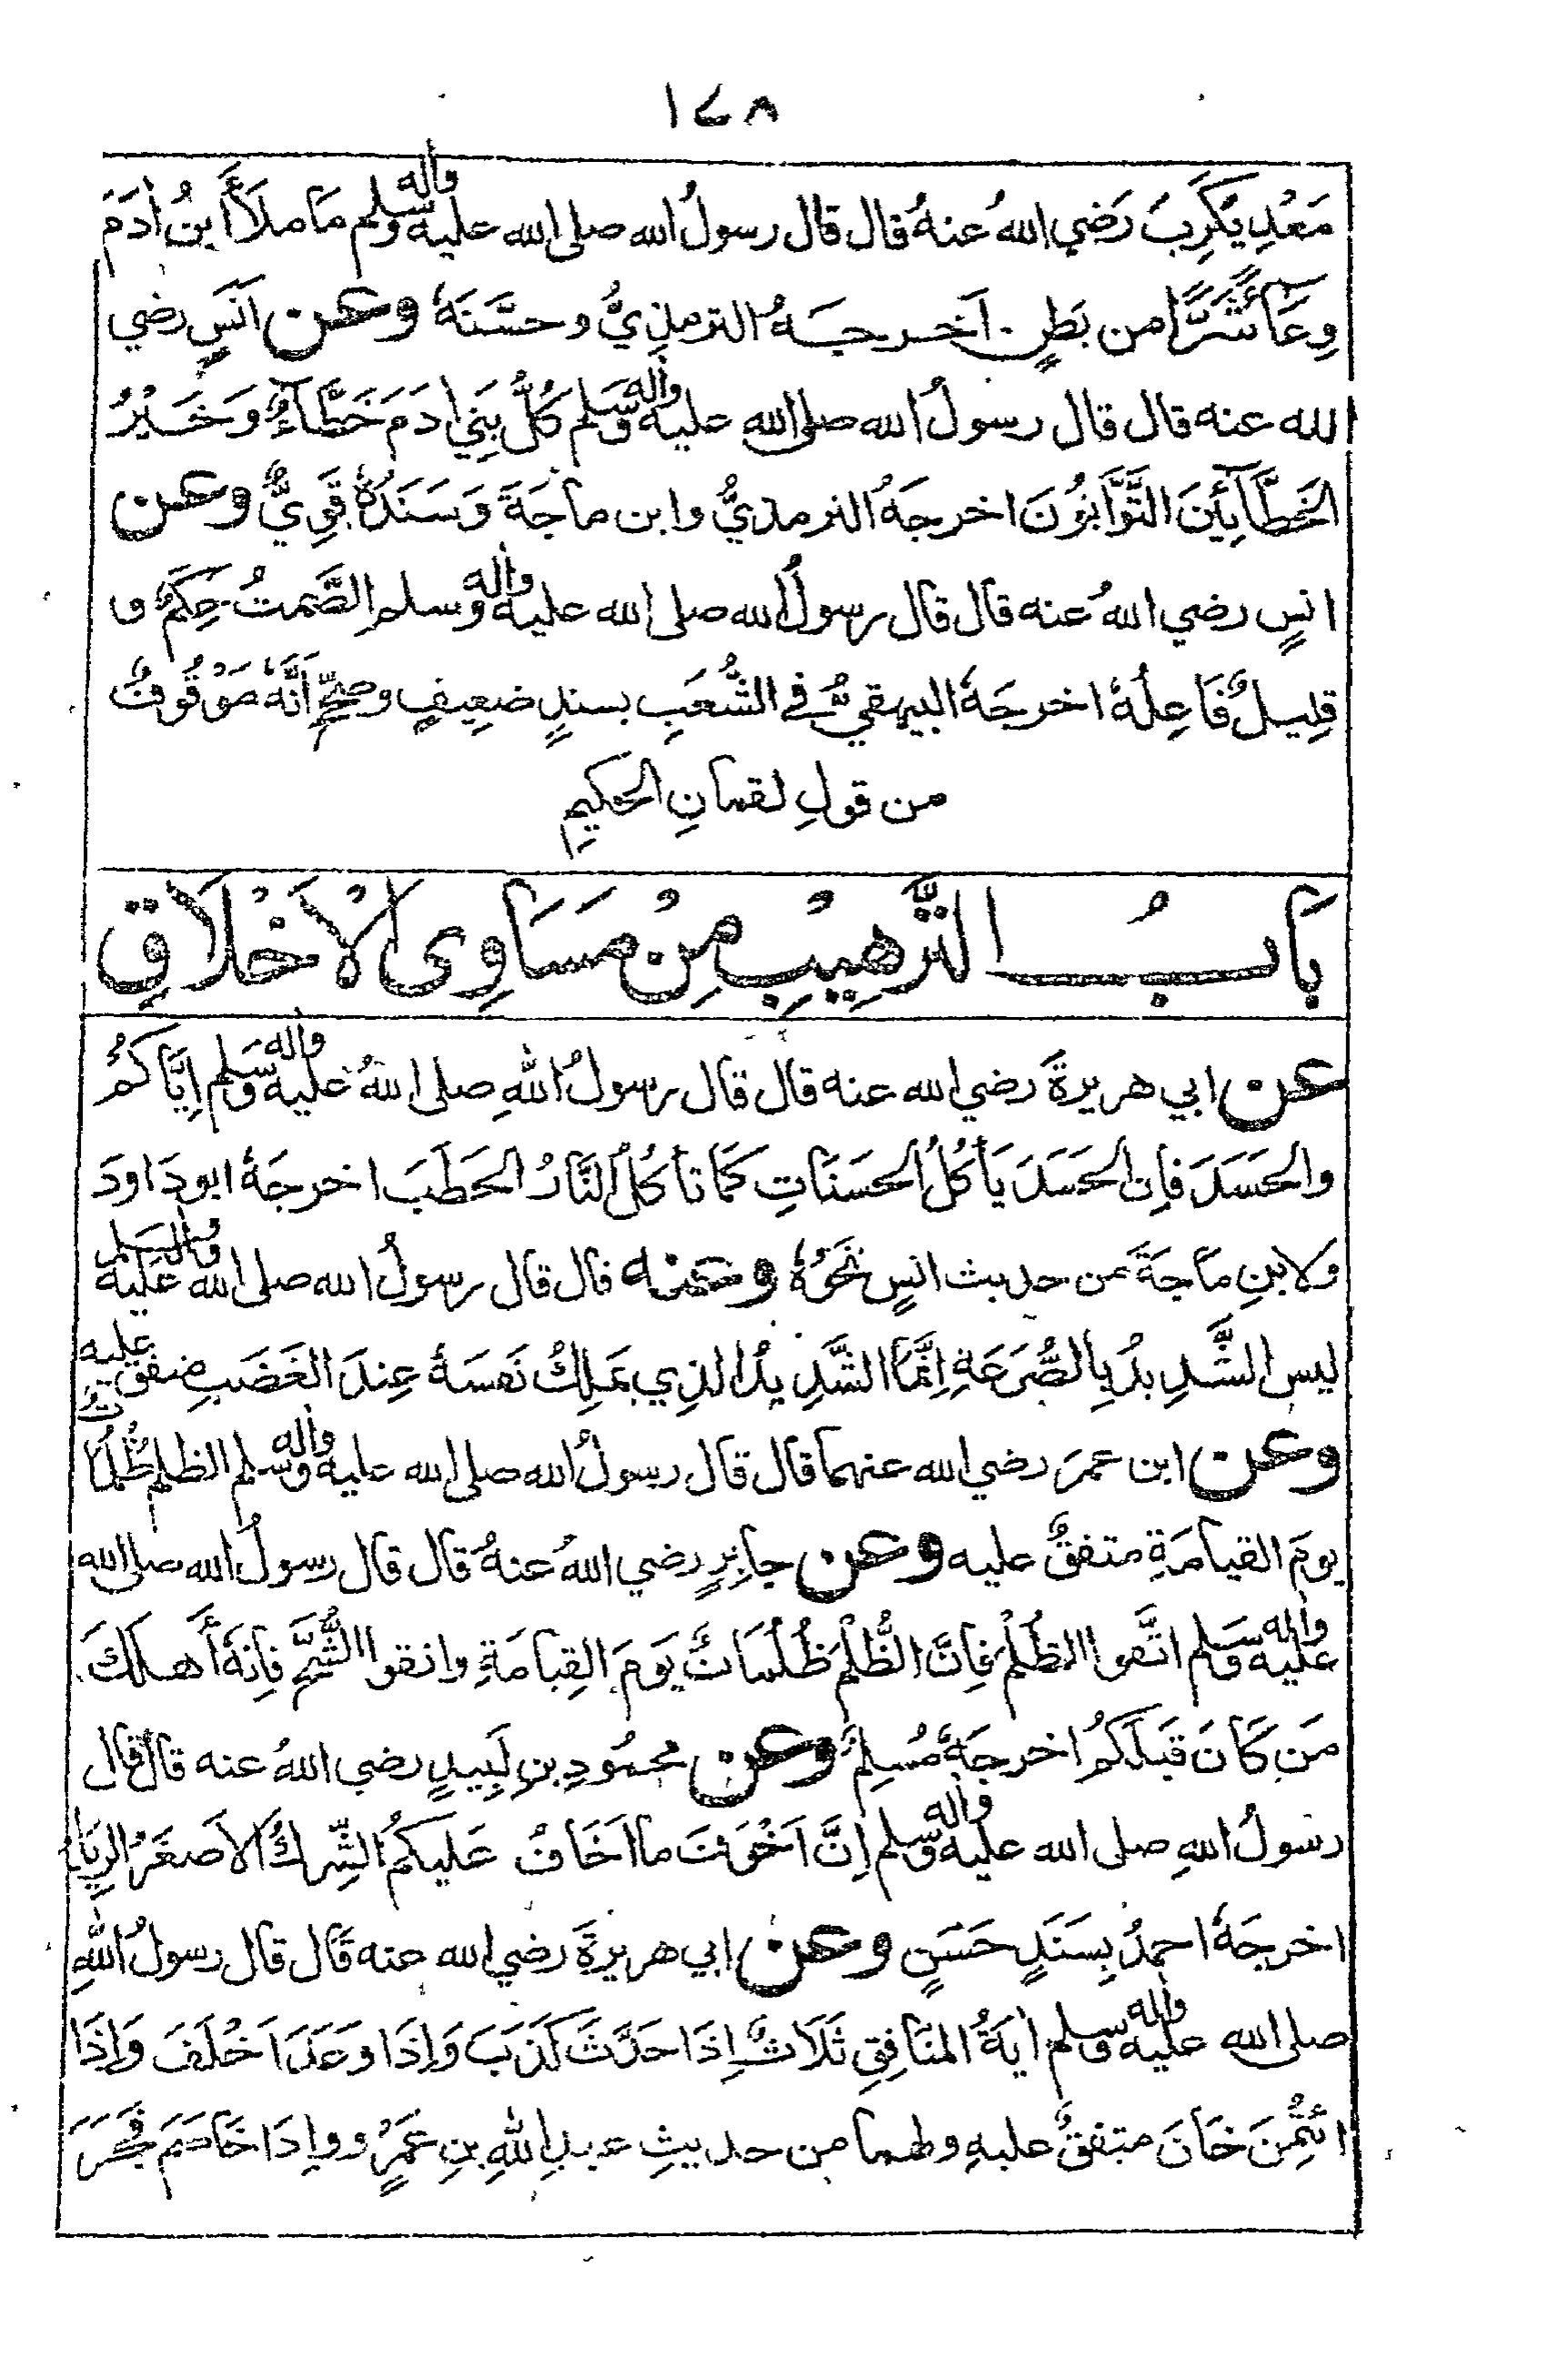 ١٤٨
مَعْدِيكَرِبَ رَضي اللهُ عنهُ قال قال رسولُ الله صلى الله عليه واٰله وسلم مَا ملَأَ ابنُ اٰدَمَ
وِعَآءً شَرًّا من بَطنٍ اَخرجَهُ الترمذِيُّ وحسَّنَهُ وعن انَسٍ رضي
الله عنه قال قال رسولُ الله صلى الله عليه واٰله وسَلم كُلُّ بَنِي اٰدَمَ خَطَّآءٌ وَخَيْرُ
الخَطَّآئِينَ التَّوَّابُونَ اخرجَهُ الترمذيُّ وابن ماجَةَ وَسَنَدُهٗ قَوِيٌّ وعن
انسٍ رضي اللهُ عنه قال قال رسولُ الله صلى الله عليه واٰله وسلم الصَّمتُ حِكَمٌ و
قلِيلٌ فَاعِلُهٗ اخرجَهُ البيهقيُّ في الشُّعَبِ بسندٍ ضعِيفٍ وصحَّحَ اَنَّهٗ مَوْقُوفٌ
من قولِ لقمانِ الحكيمِ
بَابُ التَّرهِيبِ مِنْ مَسَاوِى الْاَخْلَاقِ
عن ابي هريرةَ رضي الله عنه قال قال رسولُ اللهِ صلى اللهُ عليه واٰله وسَلم اِيَّاكُمْ
والحَسَدَ فاِن الحَسَدَ يَأكُلُ الحَسَنَاتِ كَمَا تَأكُلُ النَّارُ الحَطَبَ اخرجَهُ ابوداودَ
ولابنِ ماجَةَ من حديث انسٍ نَحْوُهٗ وعنه قال قال رسولُ الله صلى الله عليه واٰله وسلم
ليس الشَّدِيدُ بِالصُّرَعَةِ اِنَّمَا الشَّدِيدُ الذِي يَملِكُ نَفسَهُ عِندَ الغَضَبِ متفقٌ عليه
وعن ابن عمرَ رضي الله عنهما قال قال رسولُ الله صلى الله عليه واٰله وسلم الظلم ظُلُمَاتٌ
يومَ القيامَةِ متفقٌ عليه وعن جابِرٍ رضي اللهُ عنهُ قال قال رسولُ الله صلى الله
عليه واٰله وسَلم اتَّقوا الظُلْمَ فاِنَّ الظُّلْمَ ظُلُمَاتٌ يَومَ القِيامَةِ واتقوا الشُّحَّ فاِنهُ أَهلَكَ
مَن كَانَ قبلَكمُ اخرجَهُ مُسلِمٌ وعن محمُودِ بنِ لَبِيدٍ رضي اللهُ عنه قال قال
رسولُ اللهِ صلى الله عليه واٰله وسلم اِنَّ اَخْوَفَ ما اَخَافُ عَليكمُ الشِّركُ الاَصغَرُ الرِيَاءُ
اخرجَهُ احمدُ بِسَنَدٍ حَسَنٍ وعن ابي هريرةَ رضي الله عنه قال قال رسولُ اللهِ
صلى الله عليه واٰله وسلم اٰيَةُ المنَافِقِ ثَلَاثٌ اِذَا حَدَّثَ كَذَبَ وَاِذَا وَعَدَ اَخْلَفَ وَاِذَا
ائتُمِنَ خَانَ متفقٌ عليهِ ولهما من حديثِ عبدِ اللهِ بنِ عَمرٍو واِذَا خَاصَمَ فَجَرَ